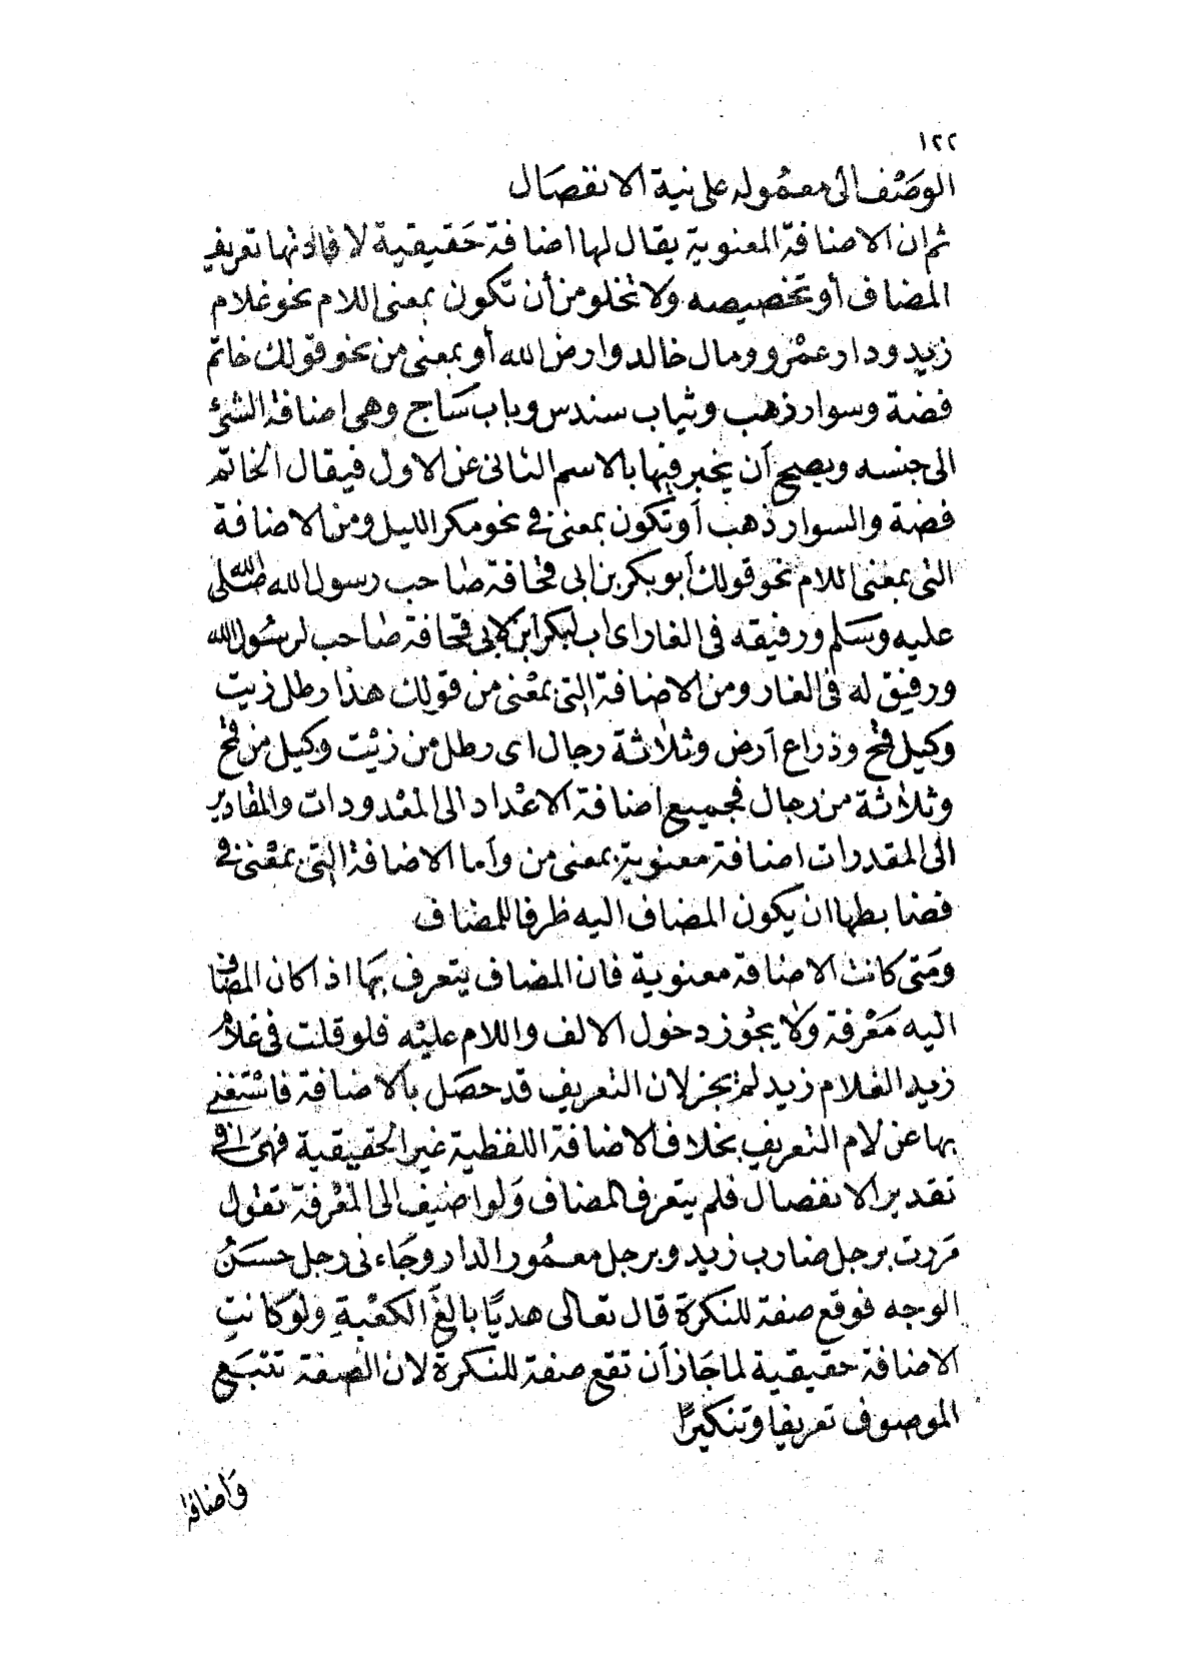 ١٢٢
الوصف الى معموله على نية الانفصال
ثم ان الاضافة المعنوية يقال لها اضافة حَقيقية لافادتها تعريف
المضاف أو تخصيصه ولا تخلو من أن تكون بمعنى اللام نحو غلام
زيد ودار عمْرو ومال خالد وارض الله أو بمعنى من نحو قولك خاتم
فضة وسوار ذهب وثياب سندس وباب سَاج وهى اضافة الشئ
الى جنسه ويصح أن يخبر فيها بالاسم الثانى عن الاول فيقال الخاتم
فضة والسوار ذهب أو تكون بمعنى فى نحو مكر الليل ومن الاضافة
التى بمعنى اللام نحو قولك أبو بكر بن ابى قحافة صاحب رسول الله صلى الله
عليه وسَلم ورفيقه فى الغار اى اب لبكر ابن لابى قحافة صاحب لرسُول الله
ورفيق له فى الغار ومن الاضافة التى بمعْنى من قولك هذا رطل زيت
وكيل قمح وذراع أرض وثلاثة رجال اى رطل من زيْت وكيل من قمح
وثلاثة من رجال فجميع اضافة الاعْداد الى المعْدودات والمقادير
الى المقدرات اضافة معنوية بمعنى من وأما الاضافة التى بمعْنى فى
فضابطها ان يكون المضاف اليه ظرفا للمضاف
ومَتى كانت الاضافة معنوية فان المضاف يتعرف بهَا اذا كان المضاف
اليه مَعْرفة ولا يجُوز دخول الالف واللام عليْه فلو قلت فى غلام
زيد الغلام زيد لم يجز لان التعريف قد حصَل بالاضافة فاسْتغنى
بها عن لام التعريف بخلاف الاضافة اللفظية غير الحقيقية فهىَ فى
تقدير الانفصال فلم يتعرف المضاف وَلو اضيف الى المعْرفة تقول
مَررت برجل ضارب زيد وبرجل معمُور الدار وجَاءنى رجل حسَنُ
الوجه فوقع صفة للنكرة قال تعالى هديًا بالغَ الكعْبةِ ولوْ كانتِ
الاضافة حقيقية لما جَاز أن تقع صفة للنكرة لان الصفة تتبَع
الموصوف تعريفا وتنكيرًا
وَاضافة